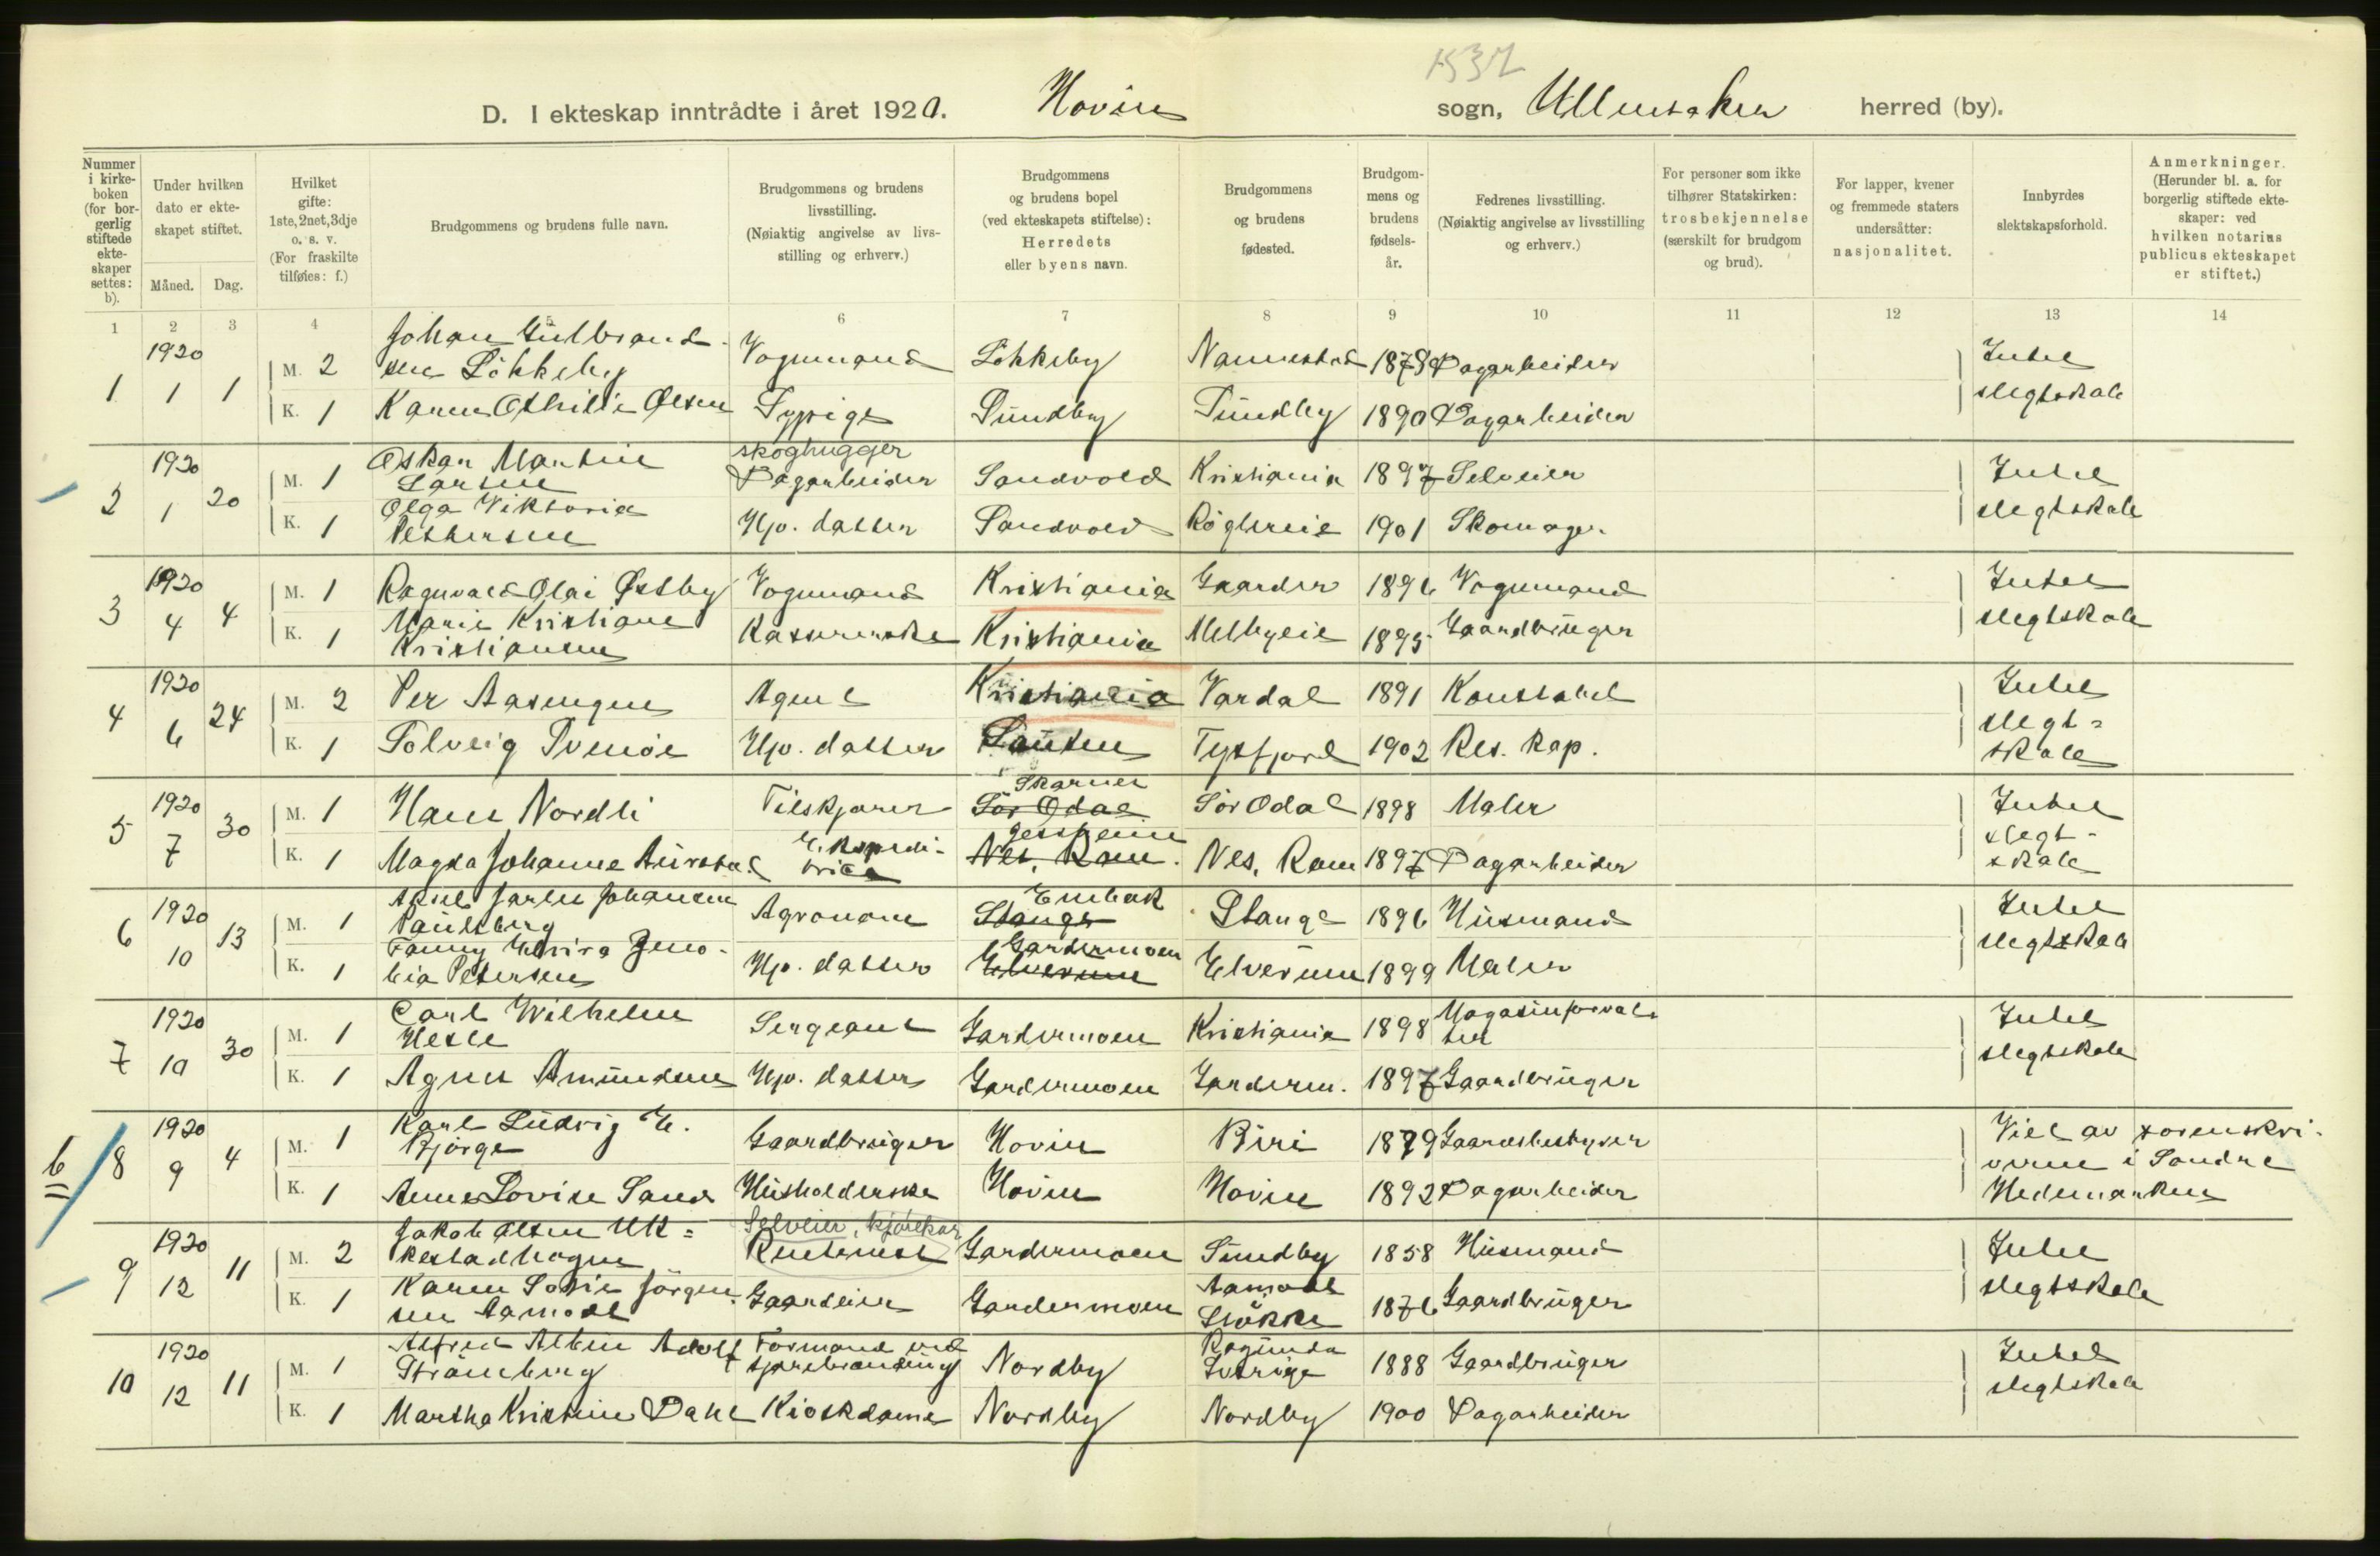 1537
D. I ekteskap inntrådte i året 1920. Hovin sogn, Ullensaker herred (by).
Nummer i kirkeboken (for borgerlig stiftede ekteskaper settes: b).
Under hvilken dato er ekteskapet stiftet.
Måned. Dag.
Hvilket gifte: 1ste, 2net, 3dje o. s. v. (For fraskilte tilføies: f.)
Brudgommens og brudens fulle navn.
Brudgommens og brudens livsstilling. (Nøiaktig angivelse av livsstilling og erhverv.)
Brudgommens og brudens bopel (ved ekteskapets stiftelse): Herredets eller byens navn.
Brudgommens og brudens fødested.
Brudgommens og brudens fødselsår.
Fedrenes livsstilling. (Nøiaktig angivelse av livsstilling og erhverv.)
For personer som ikke tilhører Statskirken: trosbekjennelse (særskilt for brudgom og brud).
For lapper, kvener og fremmede staters undersåtter: nasjonalitet.
Innbyrdes slektskapsforhold.
Anmerkninger. (Herunder bl. a. for borgerlig stiftede ekteskaper: ved hvilken notarius publicus ekteskapet er stiftet.)
1 2 3 4 5 6 7 8 9 10 11 12 13 14
1 1920 1 1 M. 2 Johan Gulbrandsen Løkkeby Vognmand Løkkeby Nannestad 1878 Dagarbeider Intet slegtskab
K. 1 Karen Othilie Olsen Sypige Sundby Sundby 1890 Dagarbeider
2 1920 1 20 M. 1 Oskar Martin Larsen skoghugger Dagarbeider Sandvold Kristiania 1897 Selveier Intet slegtskab
K. 1 Olga Viktoria Pettersen Hjv. datter Sandvold Røglereie 1901 Skomager
3 1920 4 4 M. 1 Ragnvald Olai Østby Vognmand Kristiania Gaarder 1896 Vognmand Intet slegtskab
K. 1 Marie Kristiane Kristiansen Kassererske Kristiania Melbyeie 1895 Gaardbruger
4 1920 6 24 M. 2 Per Aasengen Agent Kristiania Vardal 1891 Konstabel Intet slegt=skab
K. 1 Solveig Svenøe Hjv. datter Tysfjord 1902 Res. kap.
5 1920 7 30 M. 1 Hans Nordli Tilskjærer Skarnes Sør Odal Sør Odal 1898 Maler Intet slegt-skab
K. 1 Magda Johanne Aurstad Ekspeditrice Jessheim Nes, Rom. Nes, Rom 1897 Dagarbeider
6 1920 10 13 M. 1 Aksel Jarle Johansen Paulsberg Agronom Enebak Stange Stange 1896 Husmand Intet slegtskab
K. 1 Fanny Elvira Zenobia Petersen Hjv. datter Gardermoen Elverum Elverum 1899 Maler
7 1920 10 30 M. 1 Carl Wilhelm Hesle Sergeant Gardermoen Kristiania 1898 Magasinforvalter Intet slegtskab
K. 1 Agnes Amundsen Hjv. datter Gardermoen Garderm. 1897 Gaardbruger
b 8 1920 9 4 M. 1 Karl Ludvig E. Bjørge Gaardbruger Hovin Biri 1879 Gaardsbestyrer Viet av sorenskriveren i Søndre Hedemarken
K. 1 Anne Lovise Sand Husholderske Hovin Hovin 1892 Dagarbeider
9 1920 12 11 M. 2 Jakob Olsen Ukkestadhagen Selveier, kjørekar Rentenist Gardermoen Sundby 1858 Husmand Intet slegtskab
K. 1 Karen Sofie Jørgensen Aamodt Gaardeier Gardermoen Aamodt Sløkke 1876 Gaardbruger
10 1920 12 11 M. 1 Alfred Albin Adolf Strömberg Formand ved tjærebrænding Nordby Ragunda Sverige 1888 Gaardbruger Intet slegtskab
K. 1 Martha Kristine Dahl Kioskdame Nordby Nordby 1900 Dagarbeider